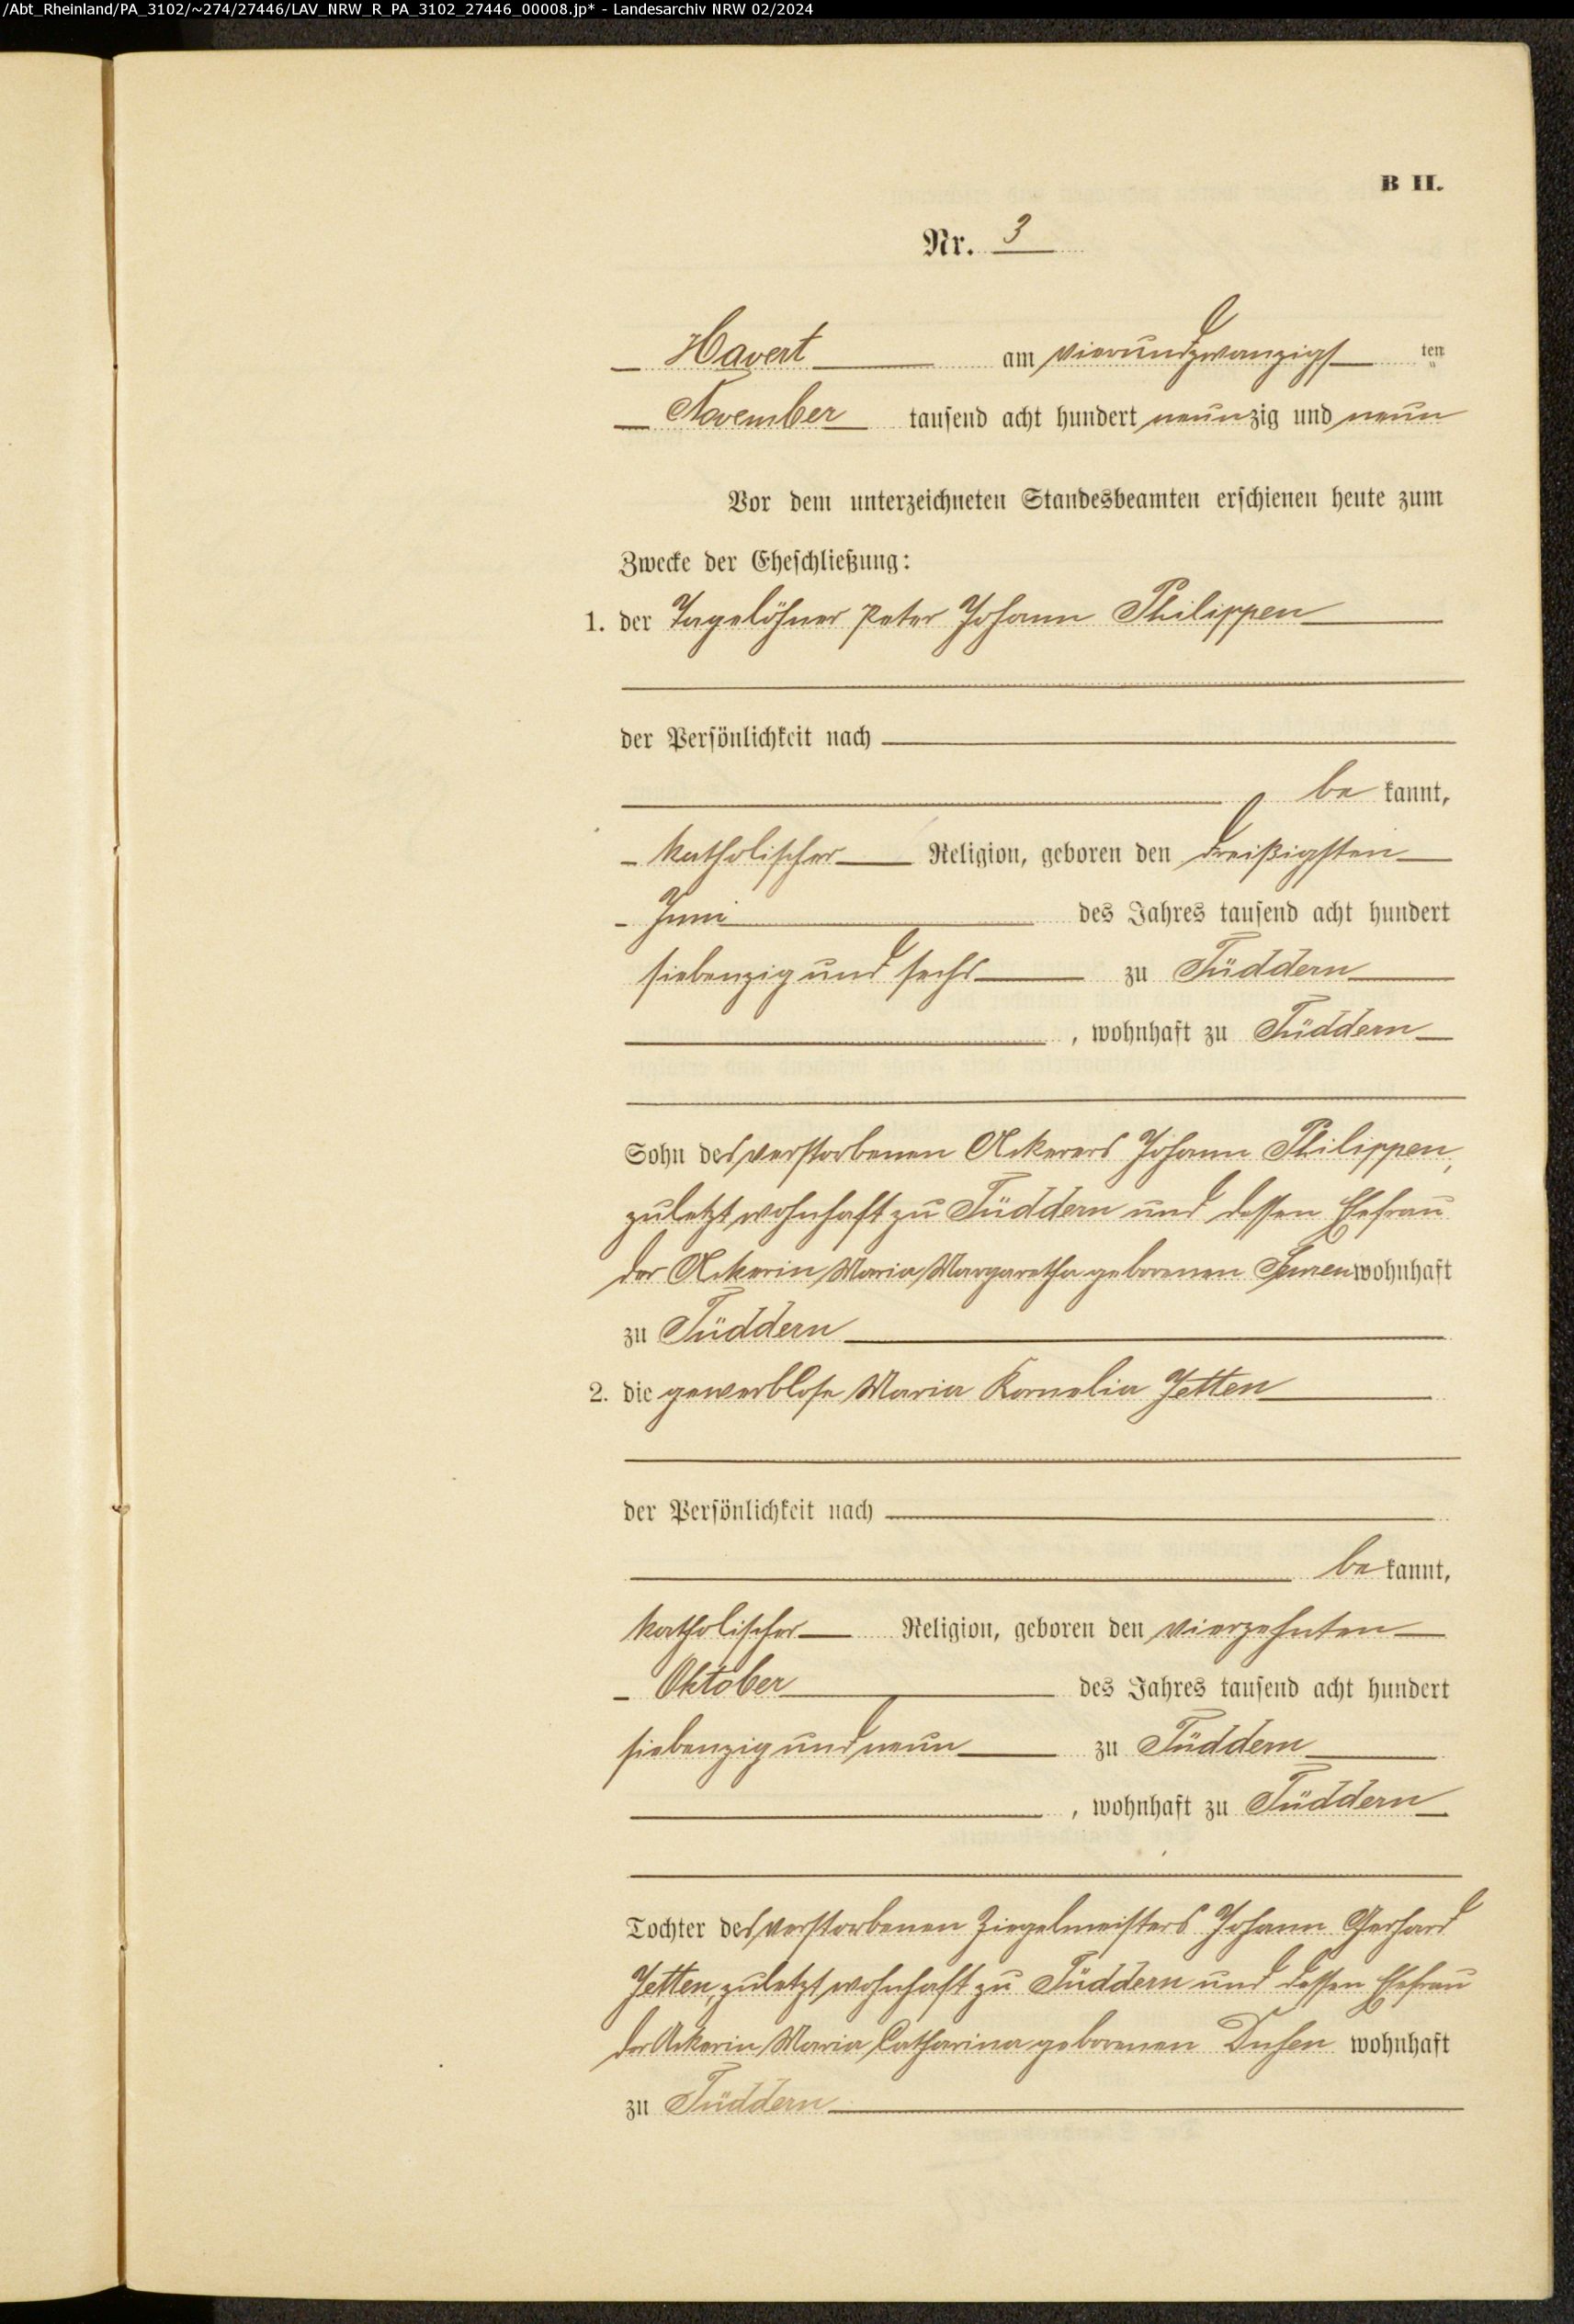 /Abt_Rheinland/PA_3102/~274/27446/LAV_NRW_R_PA_3102_27446_00008.jp* - Landesarchiv NRW 02/2024
B II.
Nr. 3
Havert am vierundzwanzigsten
November tausend acht hundert neunzig und neun
Vor dem unterzeichneten Standesbeamten erschienen heute zum
Zwecke der Eheschließung:
1. der Tagelöhner Peter Johann Philippen
der Persönlichkeit nach
bekannt,
katholischer Religion, geboren den dreißigsten
Juni des Jahres tausend acht hundert
siebenzig und sechs zu Tüddern
, wohnhaft zu Tüddern
Sohn des verstorbenen Ackerers Johann Philippen,
zuletzt wohnhaft zu Tüddern und dessen Ehefrau
der Ackerin Maria Margaretha geborenen wohnhaft
zu Tüddern
2. die gewerblose Maria Kornelia Jetten
der Persönlichkeit nach
bekannt,
katholischer Religion, geboren den vierzehnten
Oktober des Jahres tausend acht hundert
siebenzig und neun zu Tüddern
, wohnhaft zu Tüddern
Tochter des verstorbenen Ziegelmeisters Johann Gerhard
Jetten, zuletzt wohnhaft zu Tüddern und dessen Ehefrau
der Ackerin Maria Catharina geborenen Dusen wohnhaft
zu Tüddern